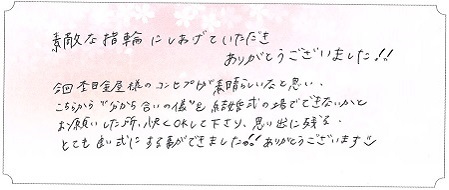 素敵な指輪にしあげていただき
ありがとうございました!!
今回杢目金屋様のコンセプトが素晴らしいなと思い、
こちらから"分かち合いの儀"を結婚式の場でできないかと
お願いした所、快くOKして下さり、思い出に残る、
とても良い式にする事ができました!!ありがとうございます